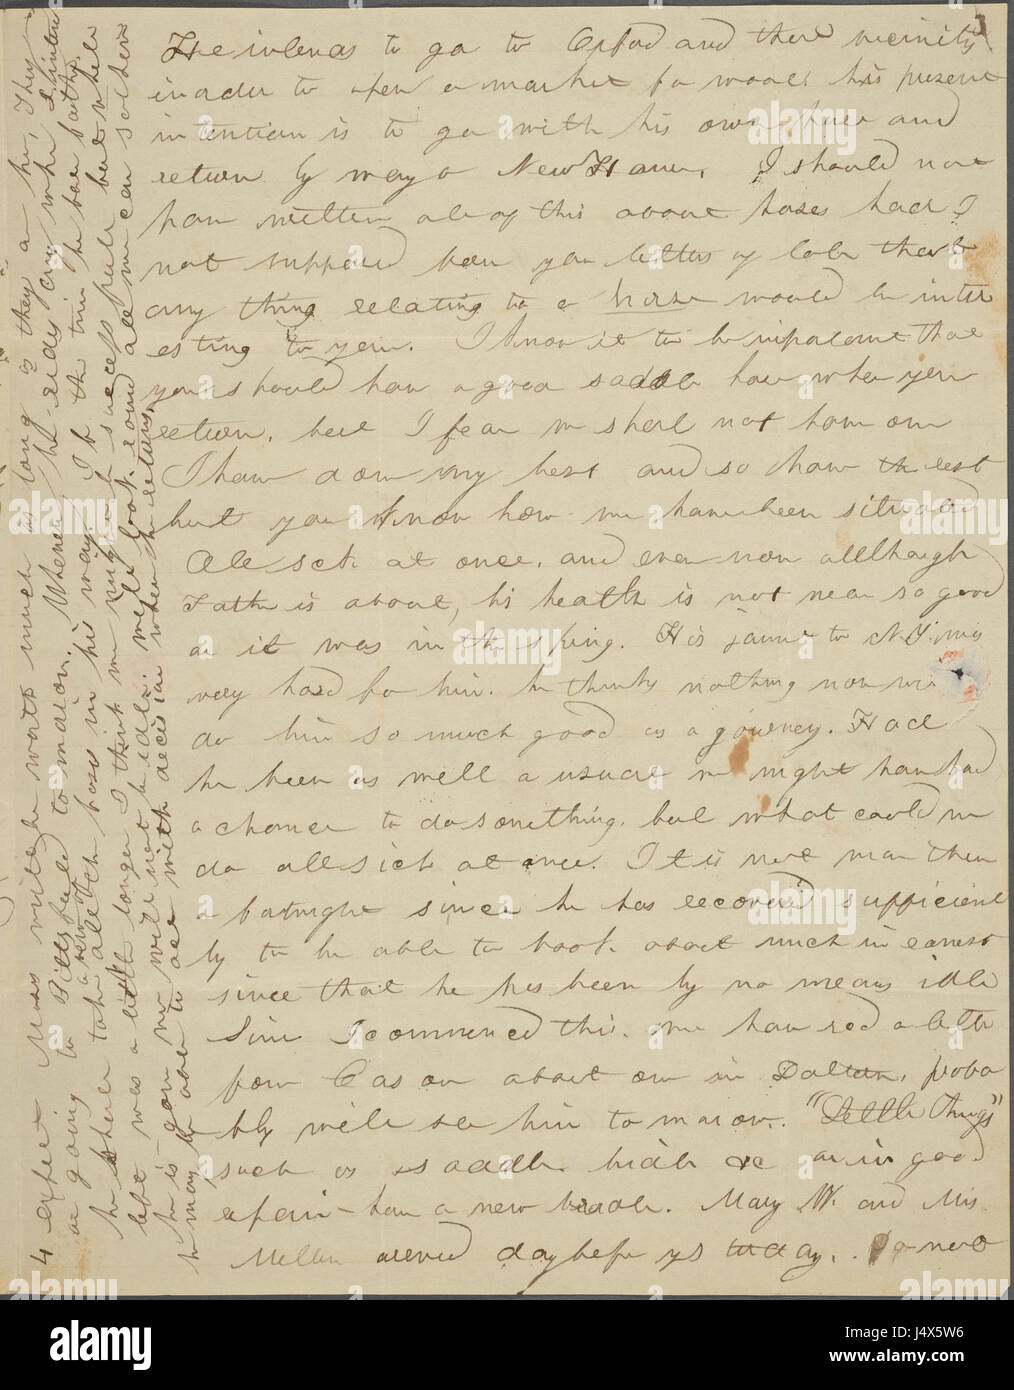 3
He intends to go to Orford and there vicinity
in order to open a market for wool his present
intention is to go with his own horse and
return by way of New Haven. I should not
have written all of this about horses had I
not supposed from your letters of late that
any thing relating to a horse would be inter
esting to you. I know it to be important that
you should have a good saddle horse when you
return, but I fear we shall not have one
I have done my best and so have the rest
but you know how we have been situated
All sick at once, and even now allthough
Father is about, his health is not near so good
as it was in the spring. His journey to N.Y. was
very hard for him. he thinks nothing now
do him so much good as a journey. Had
he been as well as usual we might have had
a chance to do something. but what could we
do all sick at once. It is not more then
a fortnight since he has recovered sufficient
ly to be able to look about much in earnest
since that he has been by no means idle
Since I commenced this. we have had a letter
from Cason about one in Dalton, proba
bly will see him tomorrow. "Little things"
such as saddle bridle &c are in good
repair - have a new bridle. Mary W. and Mrs
Mellen arrived day before yesterday. do not
4 expect Moss will be worth much as long as they are here, They
are going to Pittsfield tomorrow. Whenever he finds any where
he shall take a look here in his way. I the time he bore
but was a little longer I think we might be successfull but while
he is gone we will not be idle: will look round all we can so when
he may be able to act with decision when he returns.
alamy
alamy stock photo
J4X5W6